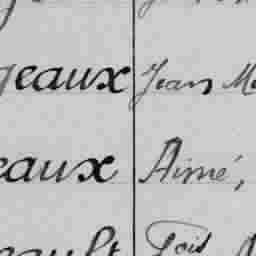 geaux Jean M
eaux Aimé,
eault